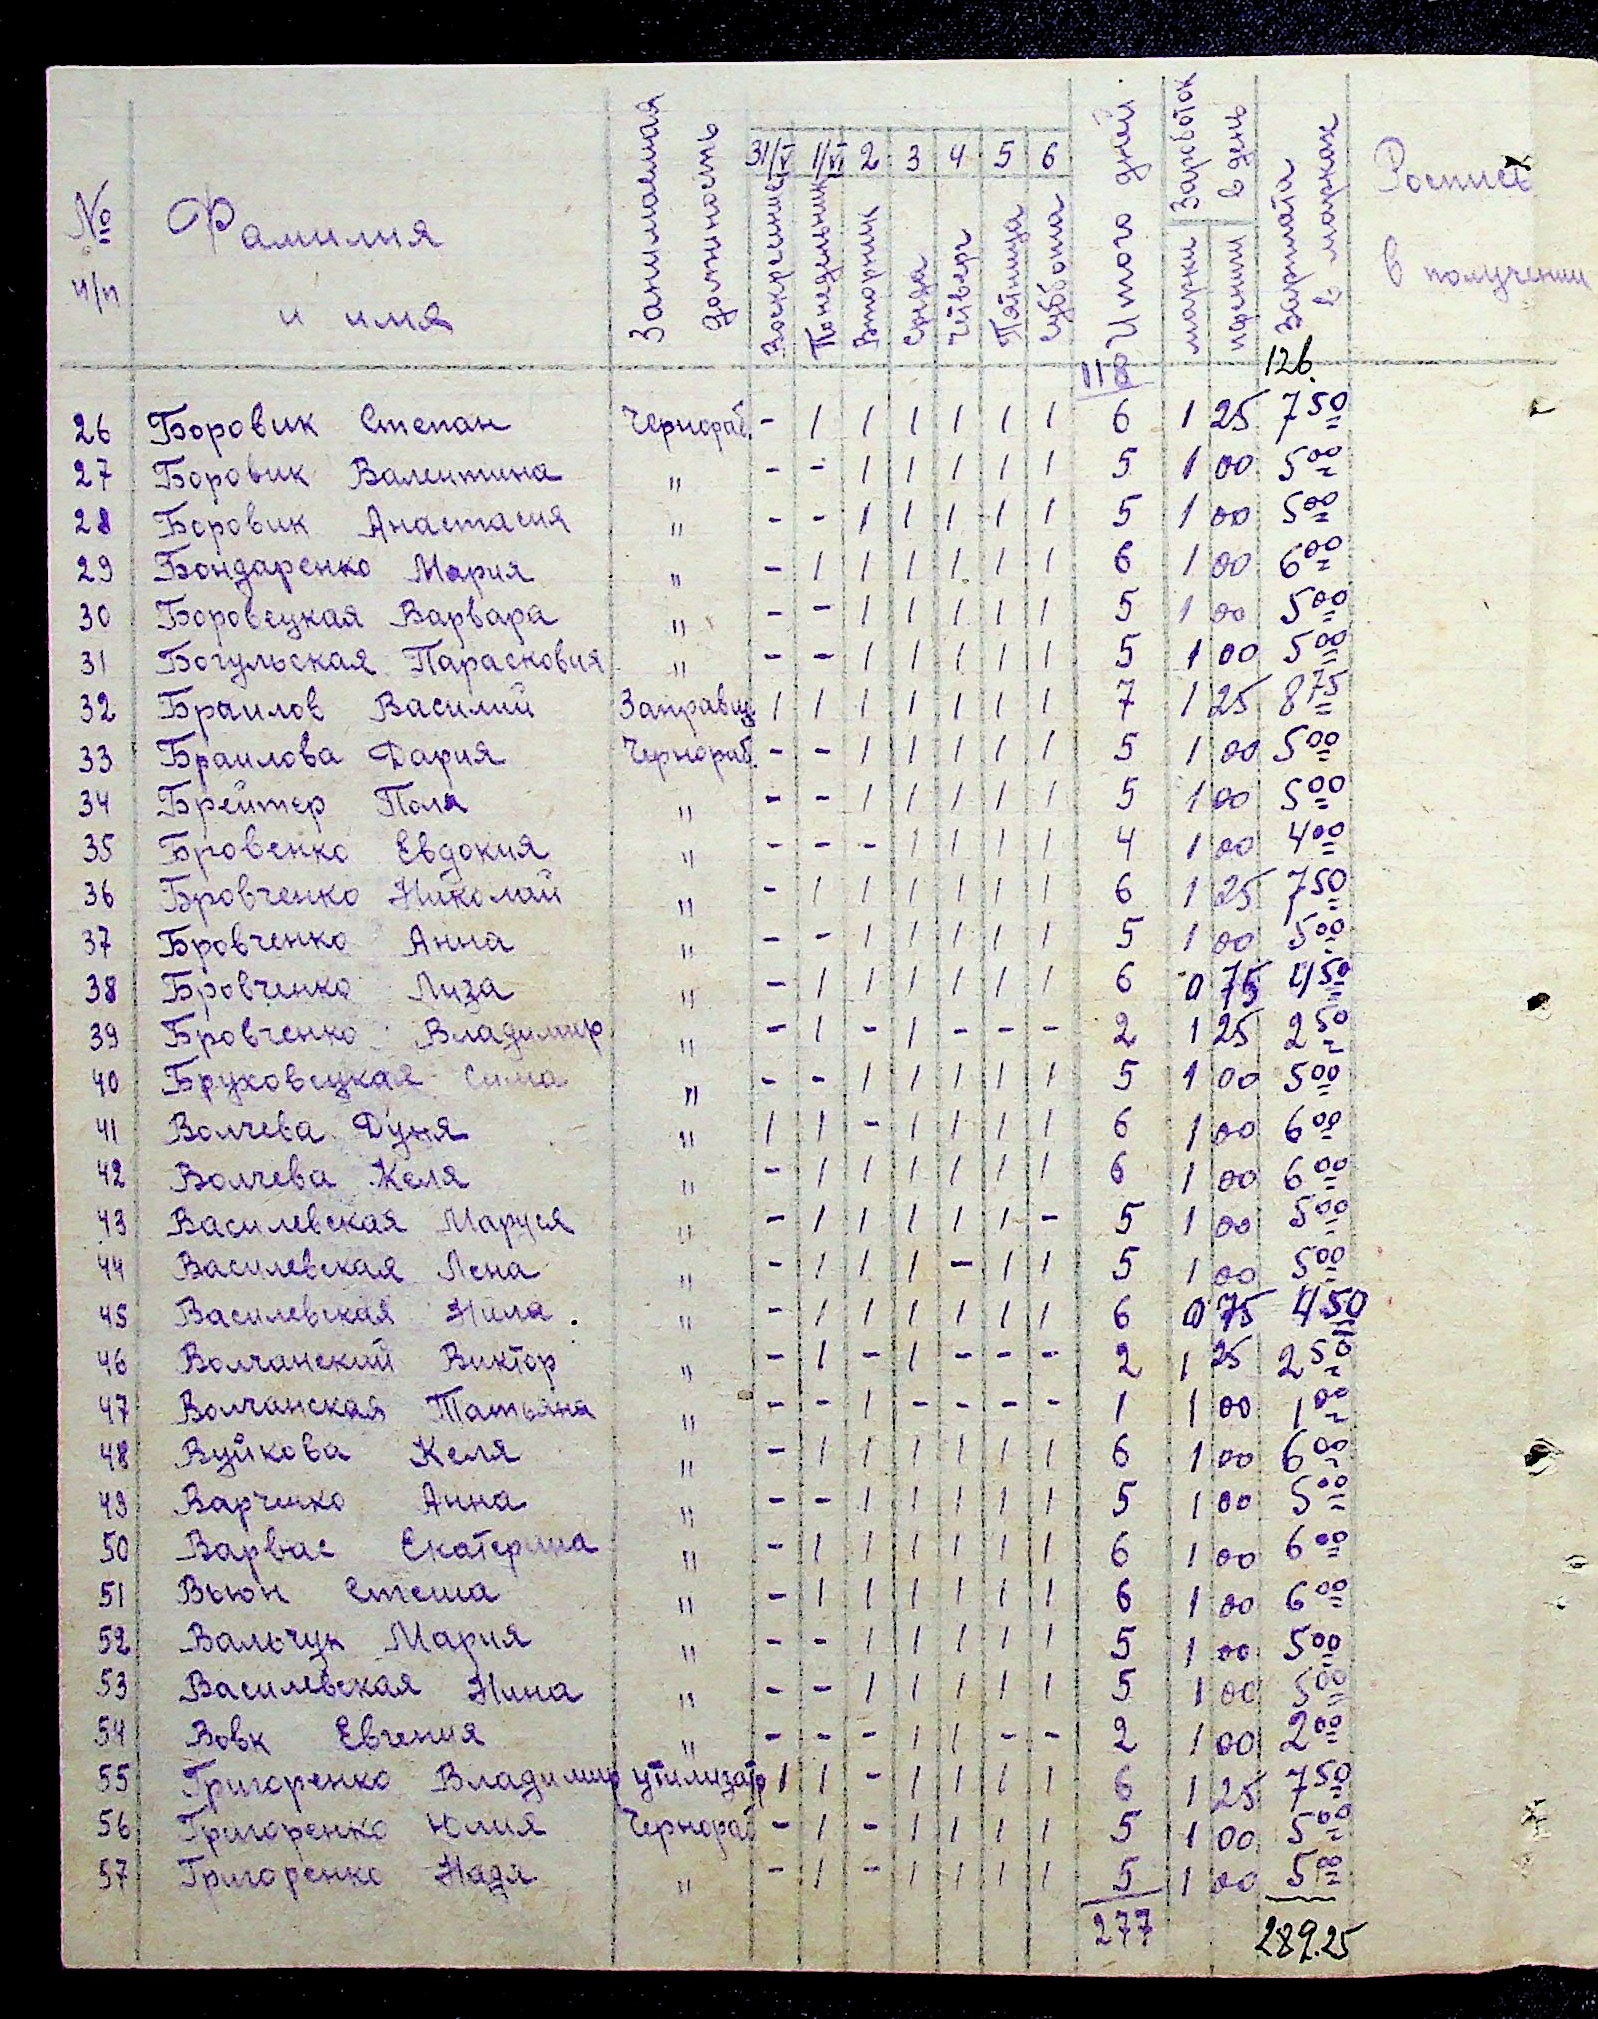 № п/п Фамилия и имя Занимаемая должность 31/V Воскресение 1/VI Понедельник 2 Вторник 3 Среда 4 Четверг 5 Пятница 6 Суббота Итого дней Заработок в день марки пфениги Зарплата в марках Роспись в получении
118 126.
26 Боровик Степан Чернораб. - 1 1 1 1 1 1 6 1 25 7 50
27 Боровик Валентина " - - 1 1 1 1 1 5 1 00 5 00
28 Боровик Анастасия " - - 1 1 1 1 1 5 1 00 5 00
29 Бондаренко Мария " - 1 1 1 1 1 1 6 1 00 6 00
30 Боровецкая Варвара " - - 1 1 1 1 1 5 1 00 5 00
31 Богульская Парасковия " - - 1 1 1 1 1 5 1 00 5 00
32 Браилов Василий Заправщ. 1 1 1 1 1 1 1 7 1 25 8 75
33 Браилова Дария Чернораб. - - 1 1 1 1 1 5 1 00 5 00
34 Брейтер Поля " - - 1 1 1 1 1 5 1 00 5 00
35 Бровенко Евдокия " - - - 1 1 1 1 4 1 00 4 00
36 Бровченко Николай " - 1 1 1 1 1 1 6 1 25 7 50
37 Бровченко Анна " - - 1 1 1 1 1 5 1 00 5 00
38 Бровченко Лиза " - 1 1 1 1 1 1 6 0 75 4 50
39 Бровченко Владимир " - 1 - 1 - - - 2 1 25 2 50
40 Бруховецкая Сима " - - 1 1 1 1 1 5 1 00 5 00
41 Волчева Дуня " 1 1 - 1 1 1 1 6 1 00 6 00
42 Волчева Келя " - 1 1 1 1 1 1 6 1 00 6 00
43 Василевская Маруся " - 1 1 1 1 1 - 5 1 00 5 00
44 Василевская Лена " - 1 1 1 - 1 1 5 1 00 5 00
45 Василевская Нила " - 1 1 1 1 1 1 6 0 75 4 50
46 Волчанский Виктор " - 1 - 1 - - - 2 1 25 2 50
47 Волчанская Татьяна " - - 1 - - - - 1 1 00 1 00
48 Вуйкова Келя " - 1 1 1 1 1 1 6 1 00 6 00
49 Варченко Анна " - - 1 1 1 1 1 5 1 00 5 00
50 Варвас Екатерина " - 1 1 1 1 1 1 6 1 00 6 00
51 Вьюн Стеша " - 1 1 1 1 1 1 6 1 00 6 00
52 Вальчук Мария " - - 1 1 1 1 1 5 1 00 5 00
53 Василевская Нина " - - 1 1 1 1 1 5 1 00 5 00
54 Вовк Евгения " - - - 1 1 - - 2 1 00 2 00
55 Григоренко Владимир утилизатр 1 1 - 1 1 1 1 6 1 25 7 50
56 Григоренко Юлия Чернораб - 1 - 1 1 1 1 5 1 00 5 00
57 Григоренко Надя " - 1 - 1 1 1 1 5 1 00 5 00
277 289.25